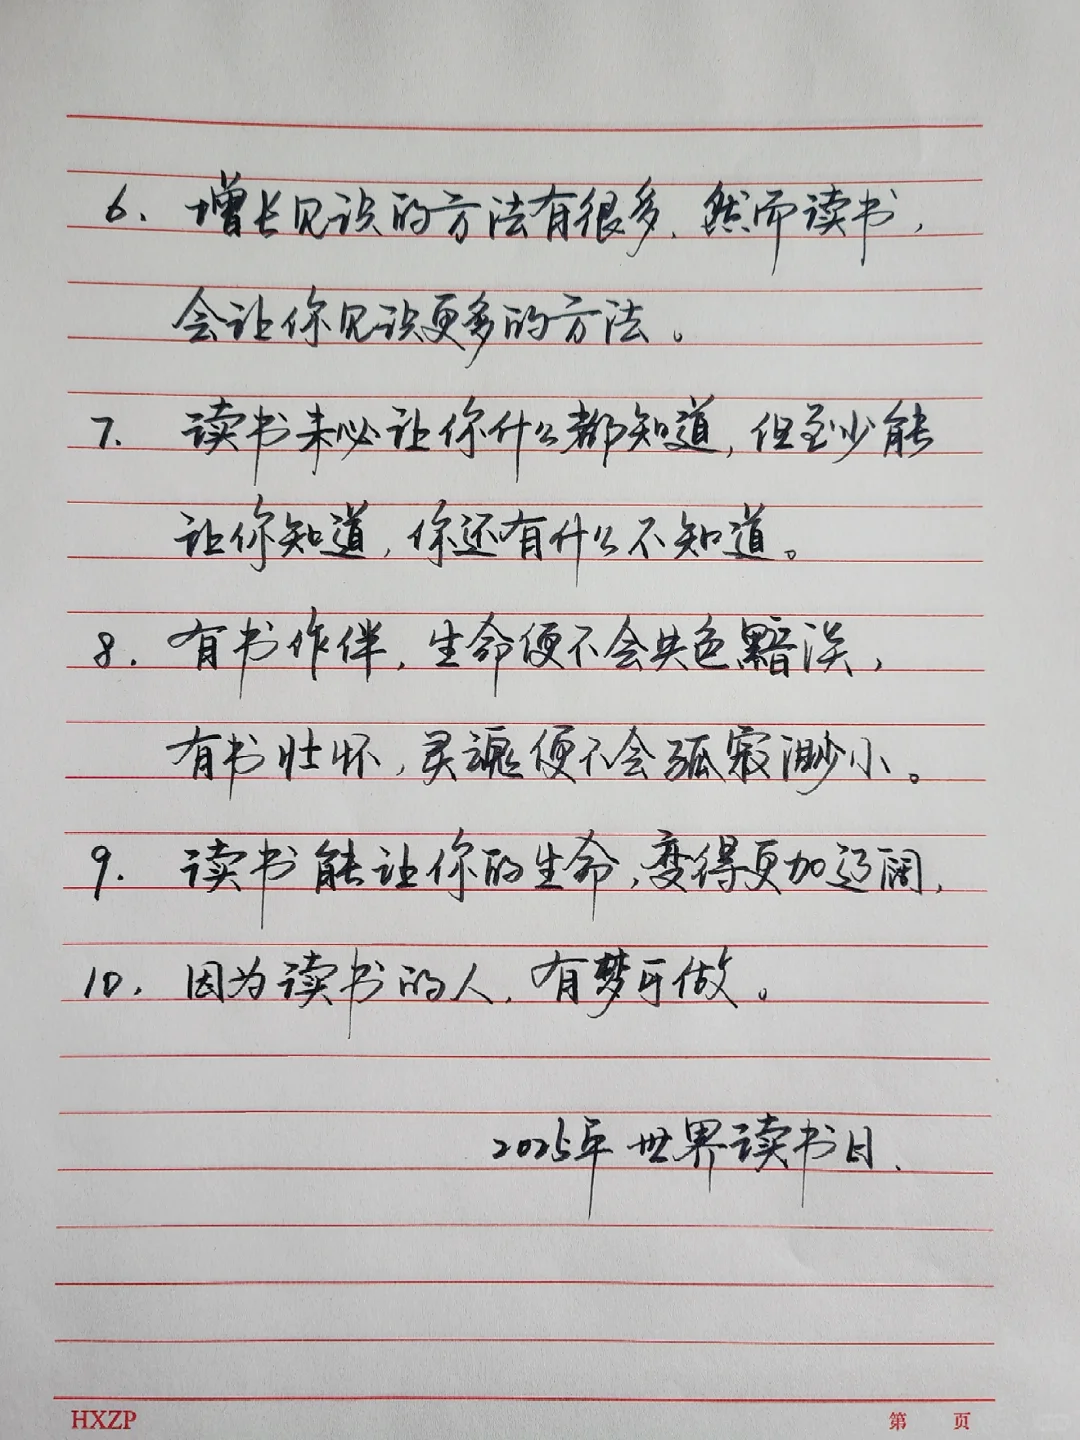 6. 增长见识的方法有很多. 然而读书,
会让你见识更多的方法。
7. 读书未必让你什么都知道, 但至少能
让你知道, 你还有什么不知道。
8. 有书作伴, 生命便不会失色黯淡,
有书壮怀, 灵魂便不会孤寂渺小。
9. 读书能让你的生命, 变得更加辽阔,
10. 因为读书的人, 有梦可做。
2025年 世界读书日.
HXZP 第 页